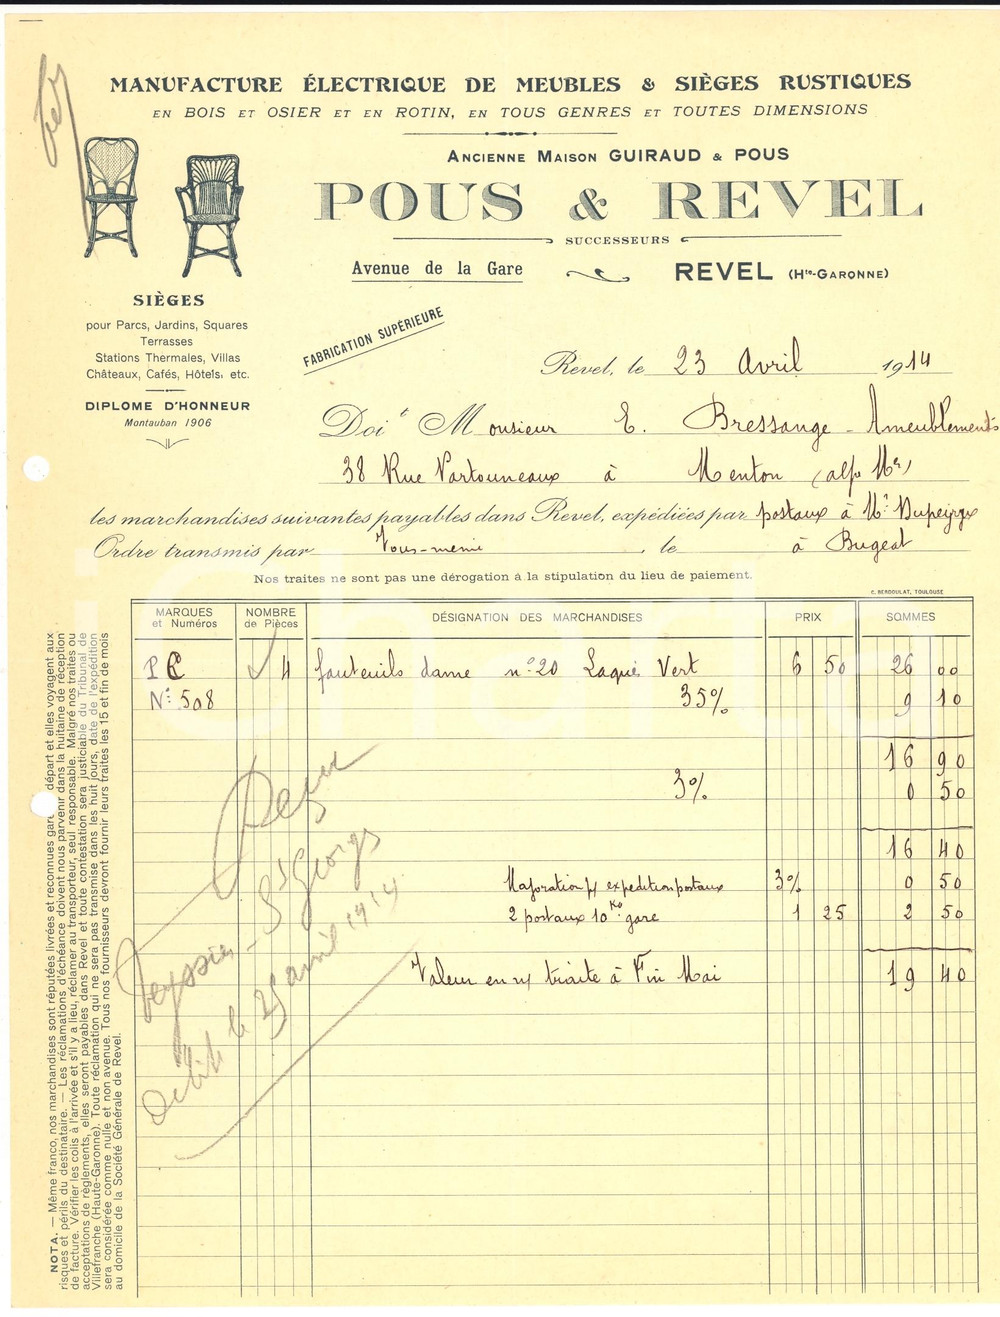 MANUFACTURE ÉLECTRIQUE DE MEUBLES & SIÈGES RUSTIQUES
EN BOIS ET OSIER ET EN ROTIN, EN TOUS GENRES ET TOUTES DIMENSIONS
ANCIENNE MAISON GUIRAUD & POUS
POUS & REVEL
SUCCESSEURS
Avenue de la Gare
REVEL (Hte-GARONNE)
SIÈGES
pour Parcs, Jardins, Squares
Terrasses
Stations Thermales, Villas
Châteaux, Cafés, Hôtels, etc.
DIPLOME D'HONNEUR
Montauban 1906
FABRICATION SUPÉRIEURE
Revel, le 23 Avril 1914
Doit Monsieur E. Bressange - Ameublements
38 Rue Partouneaux à Menton (alp Mes)
les marchandises suivantes payables dans Revel, expédiées par postaux à Mr Dupeyrix
Ordre transmis par Vous-même, le à Bugeat
Nos traites ne sont pas une dérogation à la stipulation du lieu de paiement.
C. BERDOULAT, TOULOUSE
MARQUES et Numéros NOMBRE de Pièces DÉSIGNATION DES MARCHANDISES PRIX SOMMES
P C 4 fauteuils dame n° 20 Laqué Vert 6 50 26 00
N° 508 35% 9 10
16 90
3% 0 50
16 40
Majoration p/ expédition postaux 3% 0 50
2 postaux 10 Ko gare 1 25 2 50
Valeur en n/ traite à Fin Mai 19 40
St Georges
Débit le 25 avril 1914
NOTA. — Même franco, nos marchandises sont réputées livrées et reconnues gare départ et elles voyagent aux
risques et périls du destinataire. — Les réclamations d'échéance doivent nous parvenir dans la huitaine de réception
de facture. Vérifier les colis à l'arrivée et s'il y a lieu, réclamer au transporteur, seul responsable. Malgré nos traites ou
acceptations de règlements, elles seront payables dans Revel et toute contestation sera justiciable du Tribunal de
Villefranche (Haute-Garonne). Toute réclamation qui ne sera pas transmise dans les huit jours, date de l'expédition
sera considérée comme nulle et non avenue. Tous nos fournisseurs devront fournir leurs traites les 15 et fin de mois
au domicile de la Société Générale de Revel.